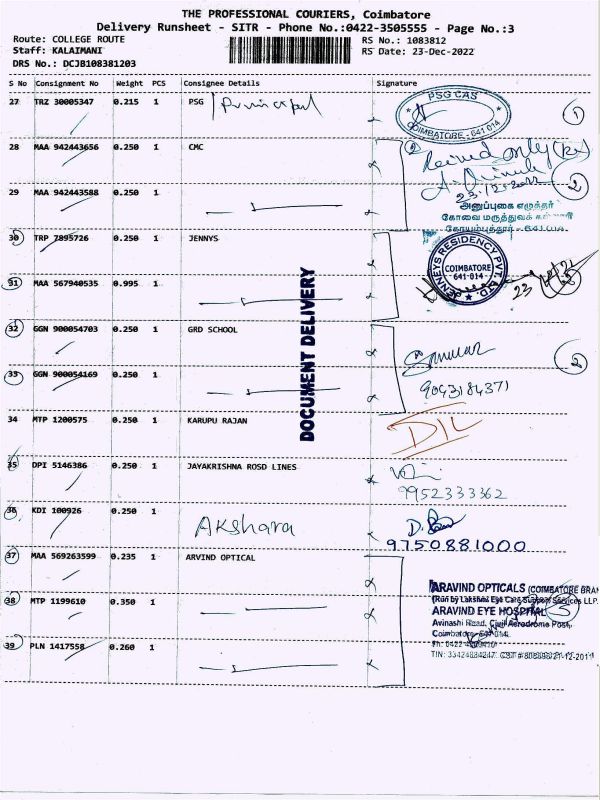 THE PROFESSIONAL COURIERS, Coimbatore
Delivery Runsheet - SITR - Phone No.:0422-3505555 - Page No.:3
Route: COLLEGE ROUTE RS No.: 1083812
Staff: KALAIMANI RS Date: 23-Dec-2022
DRS No.: DCJB108381203
S No Consignment No Weight PCS Consignee Details Signature
27 TRZ 30005347 0.215 1 PSG Principal
PSG CAS
COIMBATORE - 641 014
1
28 MAA 942443656 0.250 1 CMC
2
only
23.12.2022
29 MAA 942443588 0.250 1
அனுப்புகை எழுத்தர்
கோவை மருத்துவக்
30 TRP 7895726 0.250 1 JENNYS
JENNEYS RESIDENCY PVT. LTD.
COIMBATORE
641-014
23
31 MAA 567940535 0.995 1
DOCUMENT DELIVERY
32 GGN 900054703 0.250 1 GRD SCHOOL
2
33 GGN 900054169 0.250 1
9043184371
34 MTP 1200575 0.250 1 KARUPU RAJAN
D/L
35 DPI 5146386 0.250 1 JAYAKRISHNA ROSD LINES
9952333362
36 KDI 100926 0.250 1 Akshara
9750881000
37 MAA 569263599 0.235 1 ARVIND OPTICAL
ARAVIND OPTICALS (COIMBATORE BRAN
(Run by Lakshmi Eye Care Support Services LLP.
38 MTP 1199610 0.350 1
ARAVIND EYE HOSPITAL
Avinashi Road, Civil Aerodrome Post,
Coimbatore-641 014.
39 PLN 1417558 0.260 1